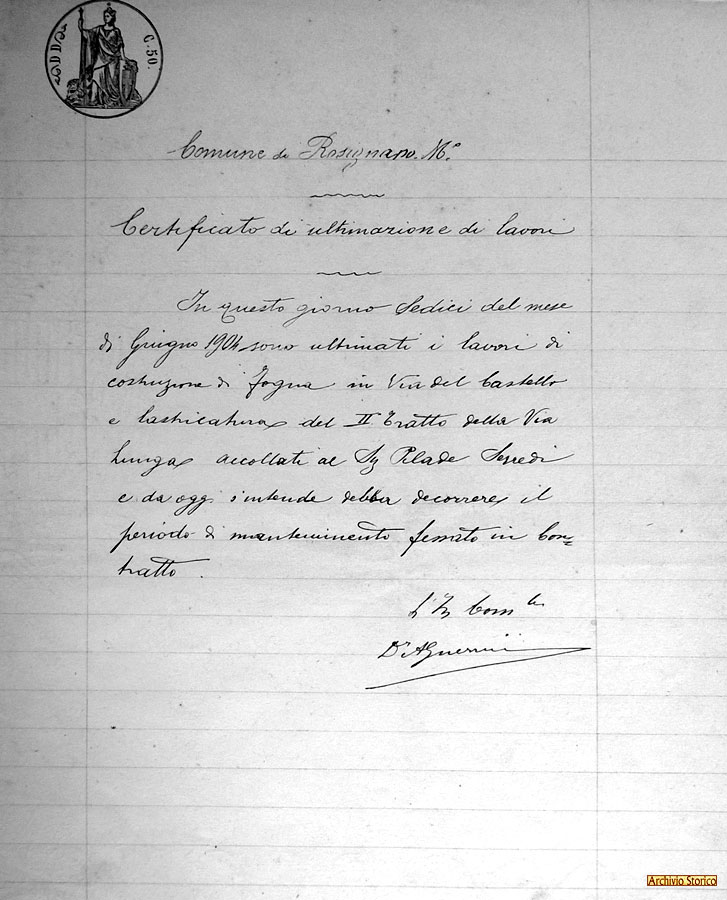 C. 50.
Comune di Rosignano M.º
Certificato di ultimazione di lavori
In questo giorno Sedici del mese
di Giugno 1904 sono ultimati i lavori di
costruzione di fogna in Via del Castello
e lastricatura del II tratto della Via
Lunga accollati al Sg Pilade Serredi
e da oggi s'intende debba decorrere il
periodo di mantenimento fissato in Con=
tratto.
L'Ig Com.le
Archivio Storico